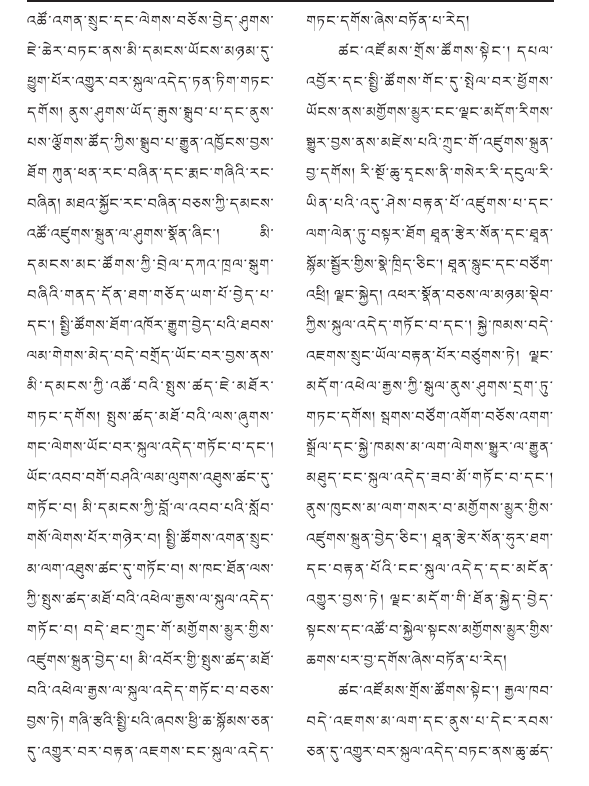 འཚོ་འགན་སྲུང་དང་ལེགས་བཅོས་བྱེད་ཤུགས་
ཇེ་ཆེར་བཏང་ནས་མི་དམངས་ཡོངས་མཉམ་དུ་
ཕྱུག་པོར་འགྱུར་བར་སྐུལ་འདེད་ཏན་ཏིག་གཏང་
དགོས། ནུས་ཤུགས་ཡོད་རྒུས་སྒྲུབ་པ་དང་ནུས་
པས་ལྕོགས་ཚོད་ཀྱིས་སྒྲུབ་པ་རྒྱུན་འཁྱོངས་བྱས་
ཐོག ཀུན་ཕན་རང་བཞིན་དང་རྨང་གཞིའི་རང་
བཞིན། མཐའ་སྐྱོང་རང་བཞིན་བཅས་ཀྱི་དམངས་
འཚོ་འཛུགས་སྐྲུན་ལ་ཤུགས་སྣོན་ཞིང་། མི་
དམངས་མང་ཚོགས་ཀྱི་བྲེལ་དཀའ་ཁྲལ་སྡུག་
བཞིའི་གནད་དོན་ཐག་གཅོད་ཡག་པོ་བྱེད་པ་
དང་། སྤྱི་ཚོགས་ཐོག་འཁོར་རྒྱུག་བྱེད་པའི་ཐབས་
ལམ་གེགས་མེད་བདེ་བགྲོད་ཡོང་བར་བྱས་ནས་
མི་དམངས་ཀྱི་འཚོ་བའི་སྤུས་ཚད་ཇེ་མཐོར་
གཏང་དགོས། སྤུས་ཚད་མཐོ་བའི་ལས་ཞུགས་
གང་ལེགས་ཡོང་བར་སྐུལ་འདེད་གཏོང་བ་དང་།
ཡོང་འབབ་བགོ་བཤའི་ལམ་ལུགས་འཐུས་ཚང་དུ་
གཏོང་བ། མི་དམངས་ཀྱི་བློ་ལ་འབབ་པའི་སློབ་
གསོ་ལེགས་པོར་གཉེར་བ། སྤྱི་ཚོགས་འགན་སྲུང་
མ་ལག་འཐུས་ཚང་དུ་གཏོང་བ། ས་ཁང་ཐོན་ལས་
ཀྱི་སྤུས་ཚད་མཐོ་བའི་འཕེལ་རྒྱས་ལ་སྐུལ་འདེད་
གཏོང་བ། བདེ་ཐང་ཀྲུང་གོ་མགྱོགས་མྱུར་གྱིས་
འཛུགས་སྐྲུན་བྱེད་པ། མི་འབོར་གྱི་སྤུས་ཚད་མཐོ་
བའི་འཕེལ་རྒྱས་ལ་སྐུལ་འདེད་གཏོང་བ་བཅས་
བྱས་ཏེ། གཞི་རྩའི་སྤྱི་པའི་ཞབས་ཕྱི་ཆ་སྙོམས་ཅན་
དུ་འགྱུར་བར་བརྟན་འཇགས་ངང་སྐུལ་འདེད་
གཏང་དགོས་ཞེས་བཏོན་པ་རེད།
ཚང་འཛོམས་གྲོས་ཚོགས་སྟེང་། དཔལ་
འབྱོར་དང་སྤྱི་ཚོགས་གོང་དུ་སྤེལ་བར་ཕྱོགས་
ཡོངས་ནས་མགྱོགས་མྱུར་ངང་ལྗང་མདོག་རིགས་
སྒྱུར་བྱས་ནས་མཛེས་པའི་ཀྲུང་གོ་འཛུགས་སྐྲུན་
བྱ་དགོས། རི་སྔོ་ཆུ་དྭངས་ནི་གསེར་རི་དངུལ་རི་
ཡིན་པའི་འདུ་ཤེས་བརྟན་པོ་འཛུགས་པ་དང་
ལག་ལེན་ཏུ་བསྟར་ཐོག ཐན་རྩེར་སོན་དང་ཐན་
སྙོམ་སྦྱོར་གྱིས་སྣེ་ཁྲིད་ཅིང་། ཐན་སྐྱུང་དང་བཙོག་
འཕྲི། ལྗང་སྐྱེད། འཕར་སྣོན་བཅས་ལ་མཉམ་སྡེབ་
ཀྱིས་སྐུལ་འདེད་གཏོང་བ་དང་། སྐྱེ་ཁམས་བདེ་
འཇགས་སྲུང་ཡོལ་བརྟན་པོར་བཙུགས་ཏེ། ལྗང་
མདོག་འཕེལ་རྒྱས་ཀྱི་སྒུལ་ནུས་ཤུགས་དྲག་ཏུ་
གཏང་དགོས། སྦགས་བཙོག་འགོག་བཅོས་འགག་
སྒྲོལ་དང་སྐྱེ་ཁམས་མ་ལག་ལེགས་སྒྱུར་ལ་རྒྱུན་
མཐུད་ངང་སྐུལ་འདེད་ཟབ་མོ་གཏོང་བ་དང་།
ནུས་ཁུངས་མ་ལག་གསར་བ་མགྱོགས་མྱུར་གྱིས་
འཛུགས་སྐྲུན་བྱེད་ཅིང་། ཐན་རྩེར་སོན་ཧུར་ཐག་
དང་བརྟན་པོའི་ངང་སྐུལ་འདེད་དང་མངོན་
འགྱུར་བྱས་ཏེ། ལྗང་མདོག་གི་ཐོན་སྐྱེད་བྱེད་
སྟངས་དང་འཚོ་བ་སྐྱེལ་སྟངས་མགྱོགས་མྱུར་གྱིས་
ཆགས་པར་བྱ་དགོས་ཞེས་བཏོན་པ་རེད།
ཚང་འཛོམས་གྲོས་ཚོགས་སྟེང་། རྒྱལ་ཁབ་
བདེ་འཇགས་མ་ལག་དང་ནུས་པ་དེང་རབས་
ཅན་དུ་འགྱུར་བར་སྐུལ་འདེད་བཏང་ནས་ཆུ་ཚད་